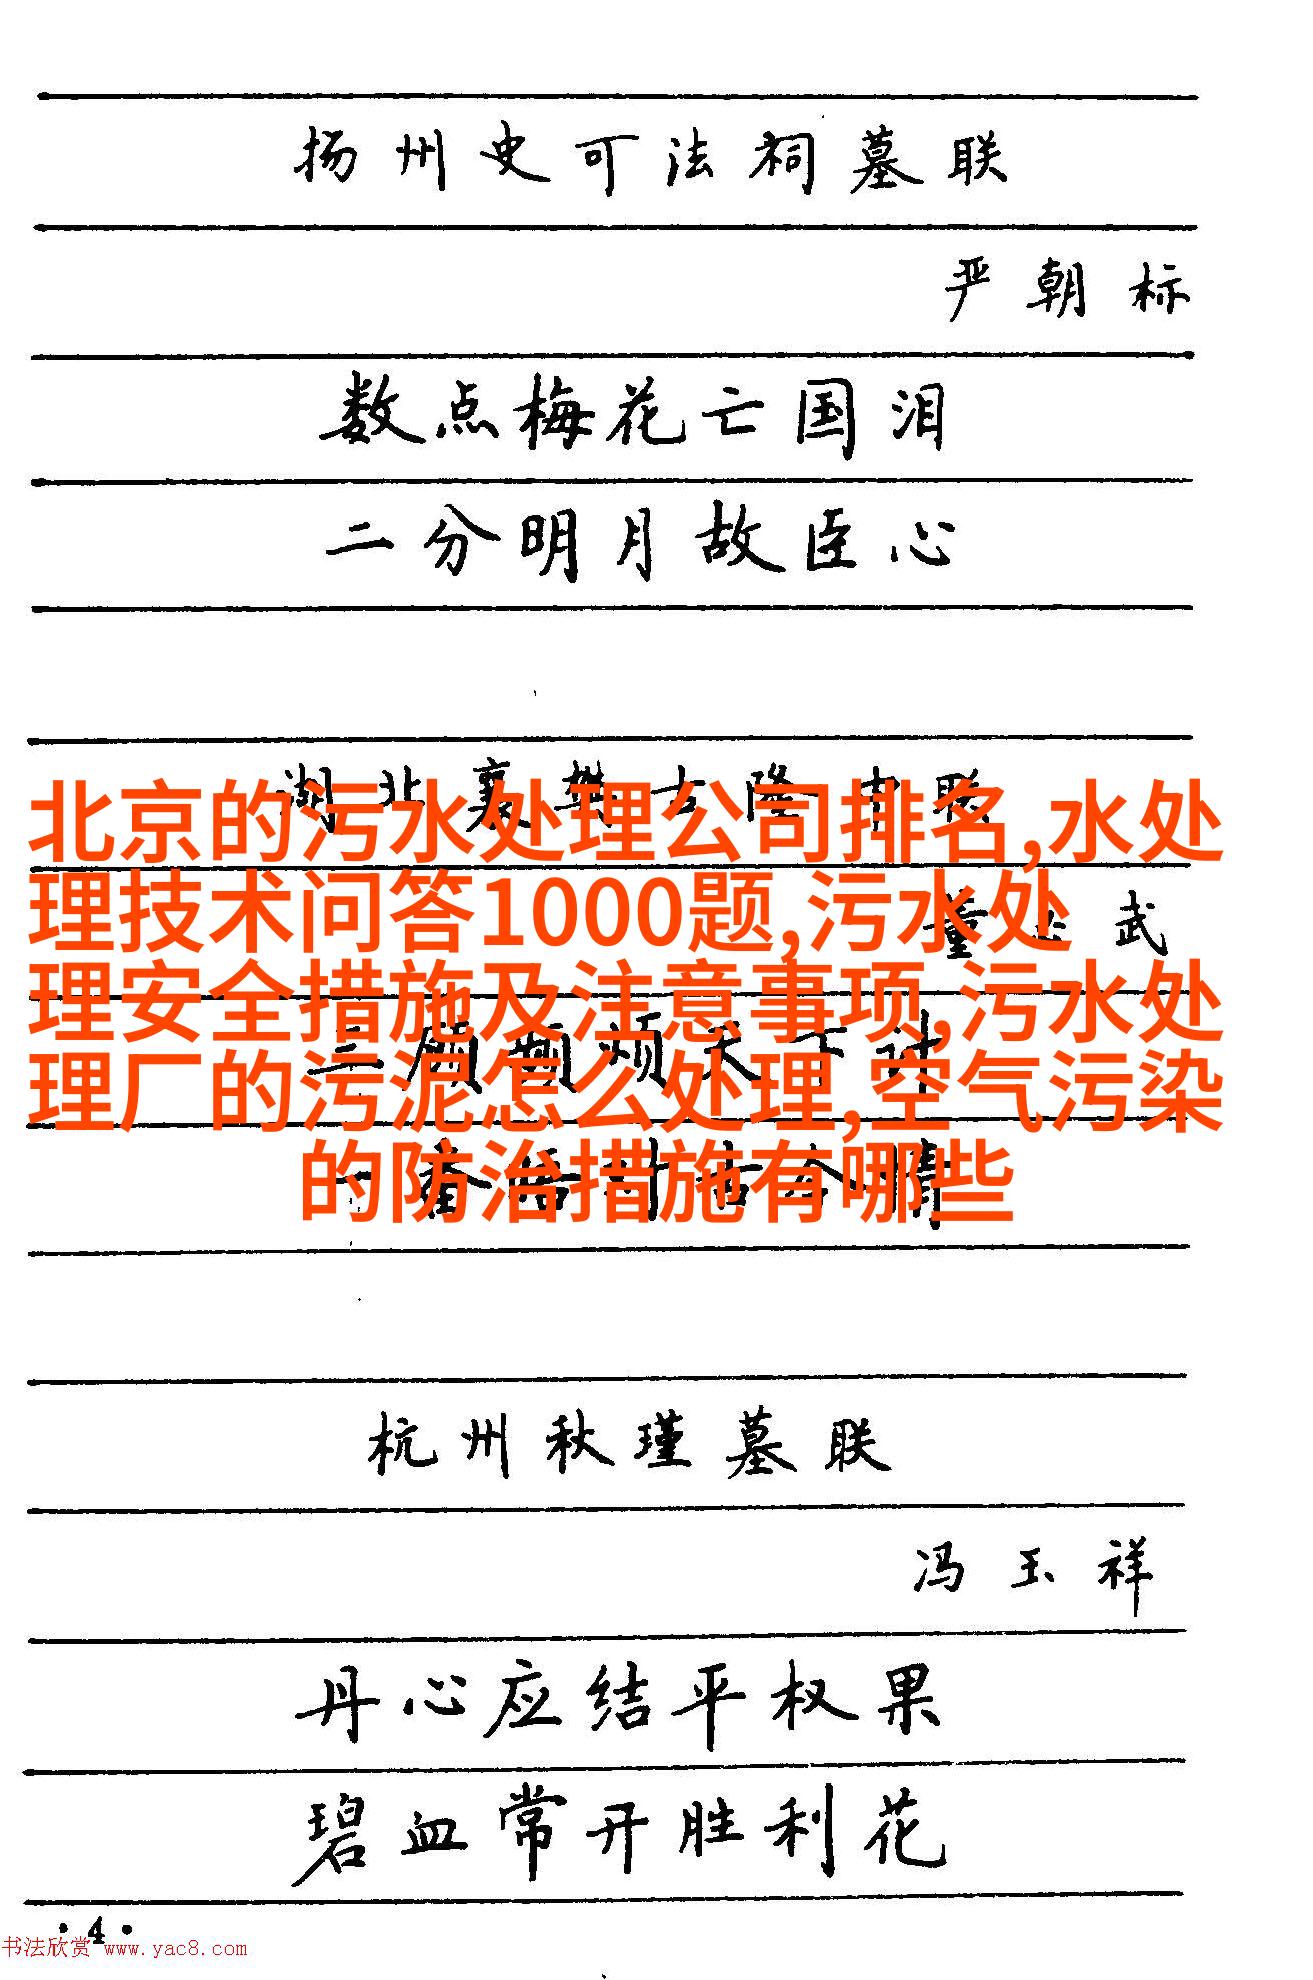 扬州史可法祠墓联
严朝标
数点梅花亡国泪
二分明月故臣心
湖北襄樊古隆中联
北京的污水处理公司排名,水处
理技术问答1000题,污水处
董必武
理安全措施及注意事项,污水处
三顾频烦天下计
理厂的污泥怎么处理,空气污染
一番晤对古今情
的防治措施有哪些
杭州秋瑾墓联
冯玉祥
丹心应结平权果
碧血常开胜利花
·4·
书法欣赏 www.yac8.com